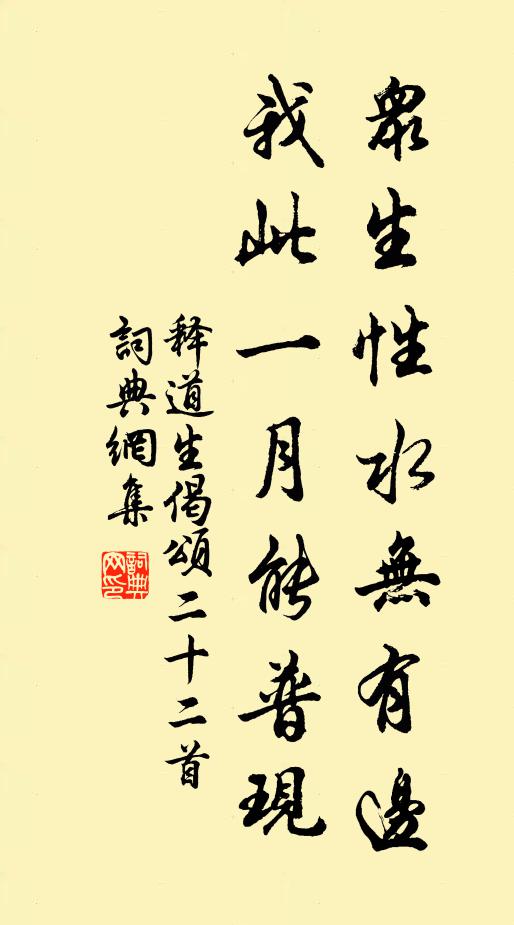 眾生性水無有邊
我此一月能普現
释道生偈頌二十二首
詞典網集
詞典網印